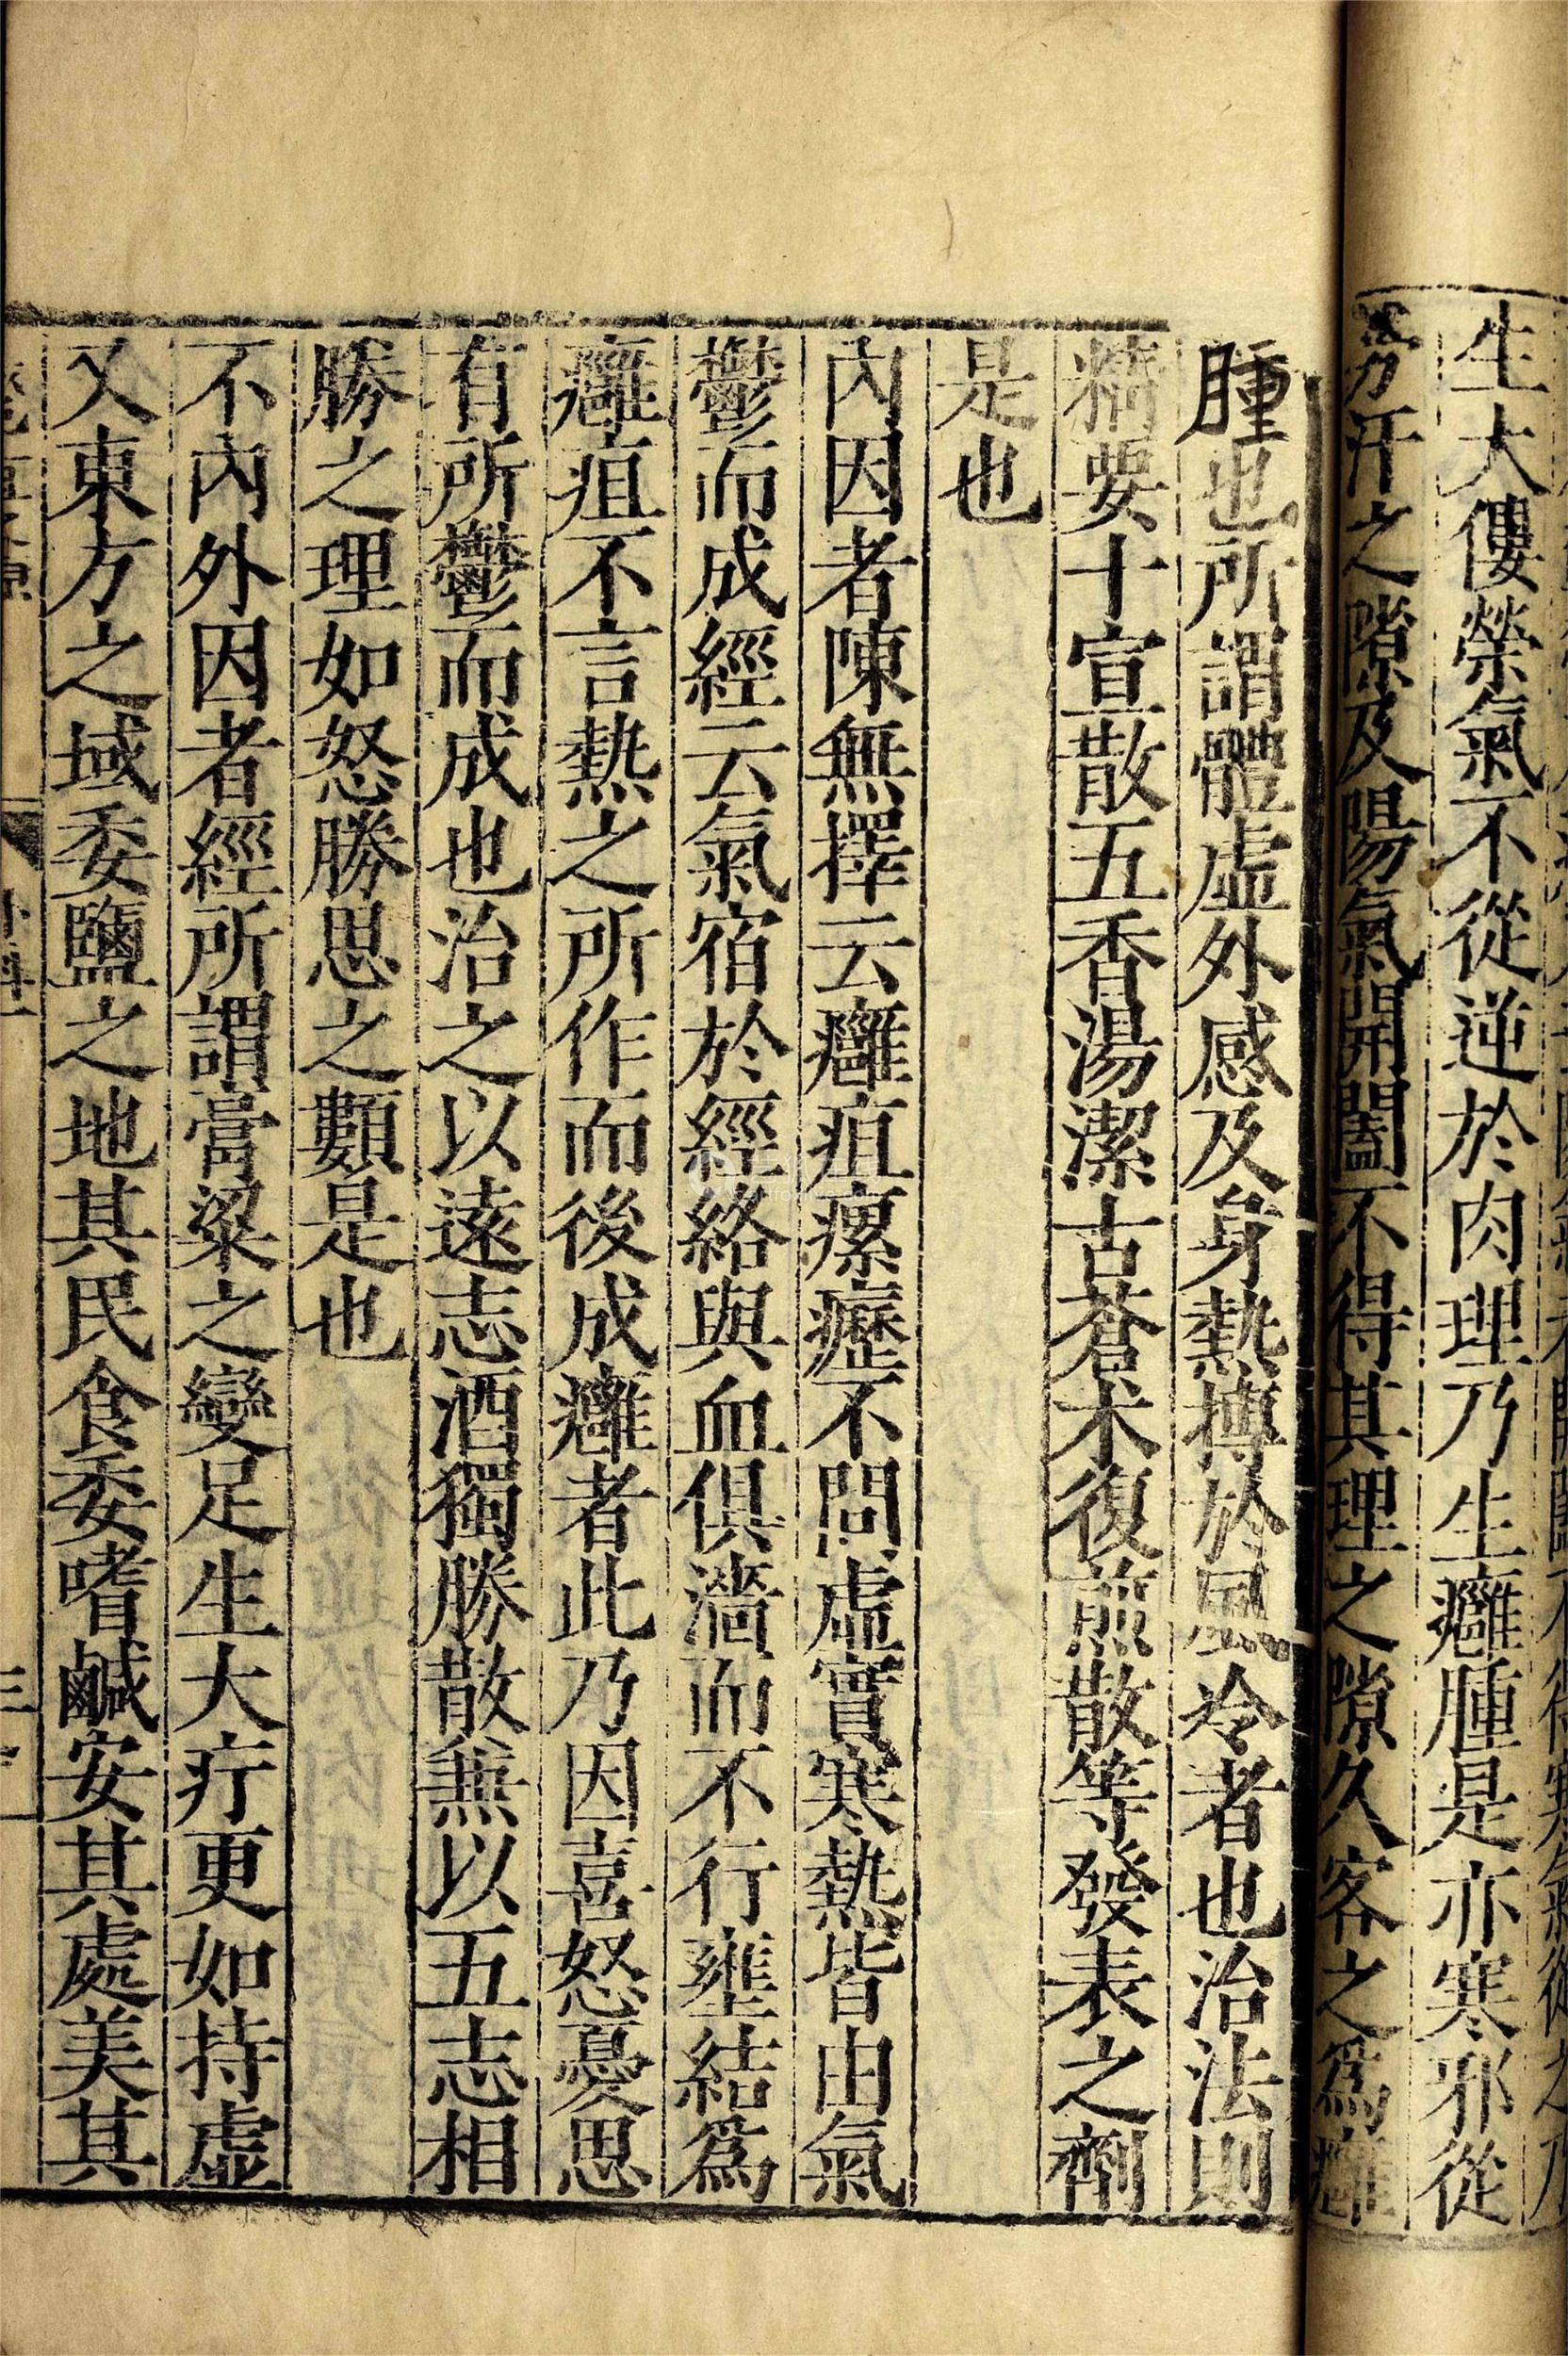 生大僂榮氣不從逆於肉理乃生癰腫是亦寒邪從
汗之隙及陽氣開闔不得其理之隙久客之爲癰
腫也所謂體虛外感及身熱搏於風冷者也治法則
精要十宣散五香湯潔古蒼术復煎散等發表之劑
是也
內因者陳無擇云癰疽瘰癧不問虛實寒熱皆由氣
鬱而成經云氣宿於經絡與血俱濇而不行壅結爲
癰疽不言熱之所作而後成癰者此乃因喜怒憂思
有所鬱而成也治之以遠志酒獨勝散兼以五志相
勝之理如怒勝思之類是也
不內外因者經所謂膏粱之變足生大疔更如持虛
又東方之域委鹽之地其民食委嗜鹹安其處美其